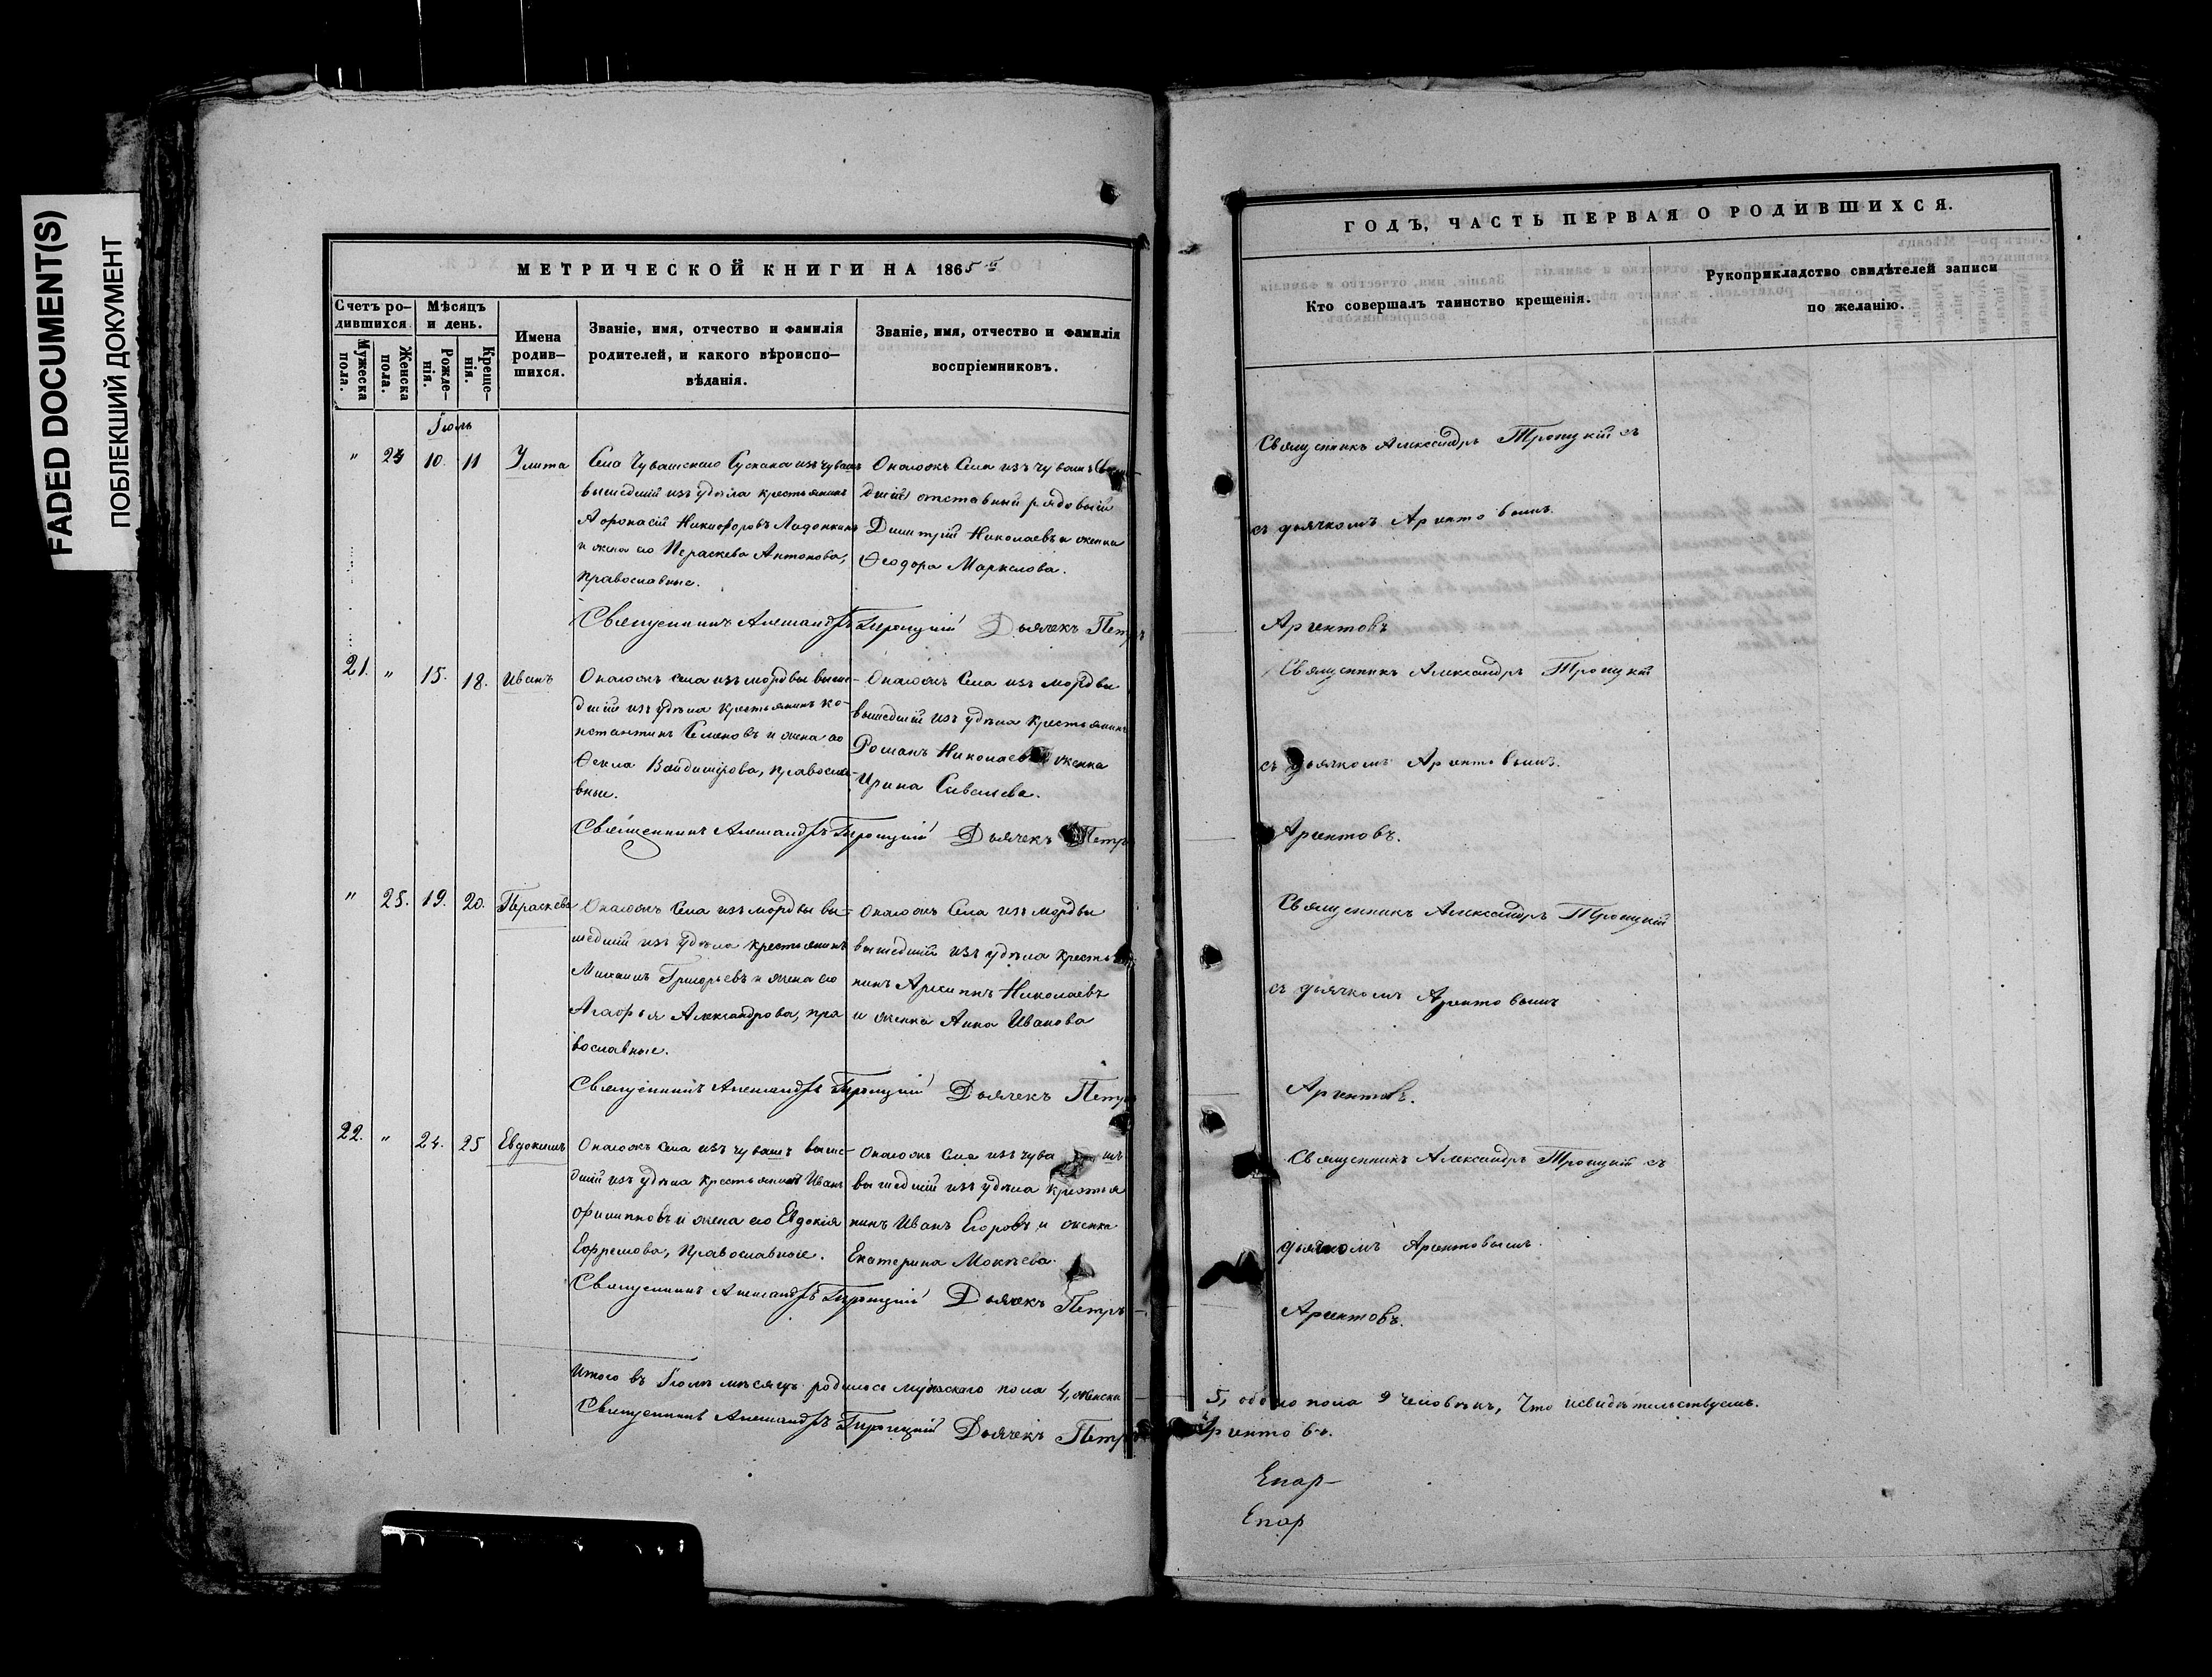 FADED DOCUMENT(S)
ПОБЛЕКШИЙ ДОКУМЕНТ
МЕТРИЧЕСКОЙ КНИГИ НА 1865
Счетъ ро-
дившихся
Мужеска пола.
Женска пола.
Мѣсяцъ
и день.
Рожде-
нія.
Креще-
нія.
Имена
родив-
шихся.
Званіе, имя, отчество и фамилія
родителей, и какого вѣроиспо-
вѣданія.
Званіе, имя, отчество и фамилія
воспріемниковъ.
Іюль
" 24 10. 11 Улита
Села Чувашскаго Сускана изъ чувашъ
вышедшій изъ удѣла крестьянинъ
Аѳонасій Никифоровъ
и жена его Параскева Антонова,
православные.
Онагожъ Села изъ чувашъ
отставный рядовый
Димитрій Николаевъ и женка
Ѳеодора Маркелова.
Священникъ Александръ Троицкій Дьячекъ Петръ
21. " 15. 18. Иванъ
Онагожъ села изъ мордвы выше-
дшій изъ удѣла крестьянинъ Ко-
нстантинъ Семеновъ и жена его
Ѳекла Владимірова, правосла-
вные.
Онагожъ Села изъ мордвы
вышедшій изъ удѣла крестьянинъ
Романъ Николаевъ женка
Ирина Савельева.
Священникъ Александръ Троицкій Дьячекъ Петръ
" 25. 19. 20. Параскева
Онагожъ Села изъ мордвы вы-
шедшій изъ удѣла крестьянинъ
Михаилъ Григорьевъ и жена его
Агафья Александрова, пра
вославные.
Онагожъ Села изъ мордвы
вышедшій изъ удѣла крестья
нинъ Архипъ Николаевъ
и женка Анна Иванова
Священникъ Александръ Троицкій Дьячекъ Петръ
22. " 24. 25 Евдокимъ
Онагожъ села изъ чувашъ выше-
дшій изъ удѣла крестьянинъ Иванъ
Филипповъ и жена его Евдокія
Ефремова, православные.
Онагожъ Села изъ чува шъ
вышедшій изъ удѣла крестья
нинъ Иванъ Егоровъ и женка
Екатерина Мокѣева.
Священникъ Александръ Троицкій Дьячекъ Петръ
Итого въ Іюлѣ мѣсяцѣ родилося мужскаго пола 4, женска
Священникъ Александръ Троицкій Дьячекъ Петръ
ГОДЪ, ЧАСТЬ ПЕРВАЯ О РОДИВШИХСЯ.
Кто совершалъ таинство крещенія.
Рукоприкладство свидѣтелей записи
по желанію.
Священникъ Александръ Троицкій съ
съ дьячкомъ Аргентовымъ.
Аргентовъ
Священникъ Александръ Троицкій
съ дьячкомъ Аргентовымъ.
Аргентовъ.
Священникъ Александръ Троицкій
съ дьячкомъ Аргентовымъ
Аргентовъ.
Священникъ Александръ Троицкій съ
дьячкомъ Аргентовымъ.
Аргентовъ.
5, обоего пола 9 человѣкъ, Что и свидѣтельствуемъ.
Аргентовъ.
Епар-
Епар